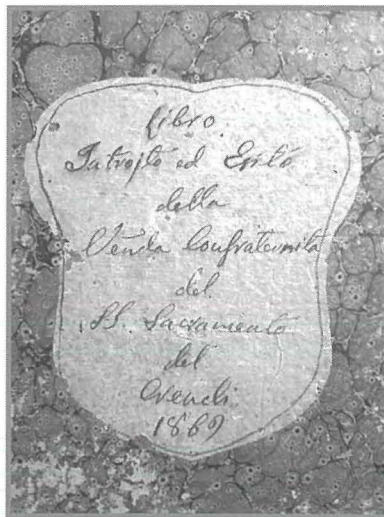 Libro
Introjto ed Esito
della
Venda Confraternita
del
SS. Sacramento
del
1869